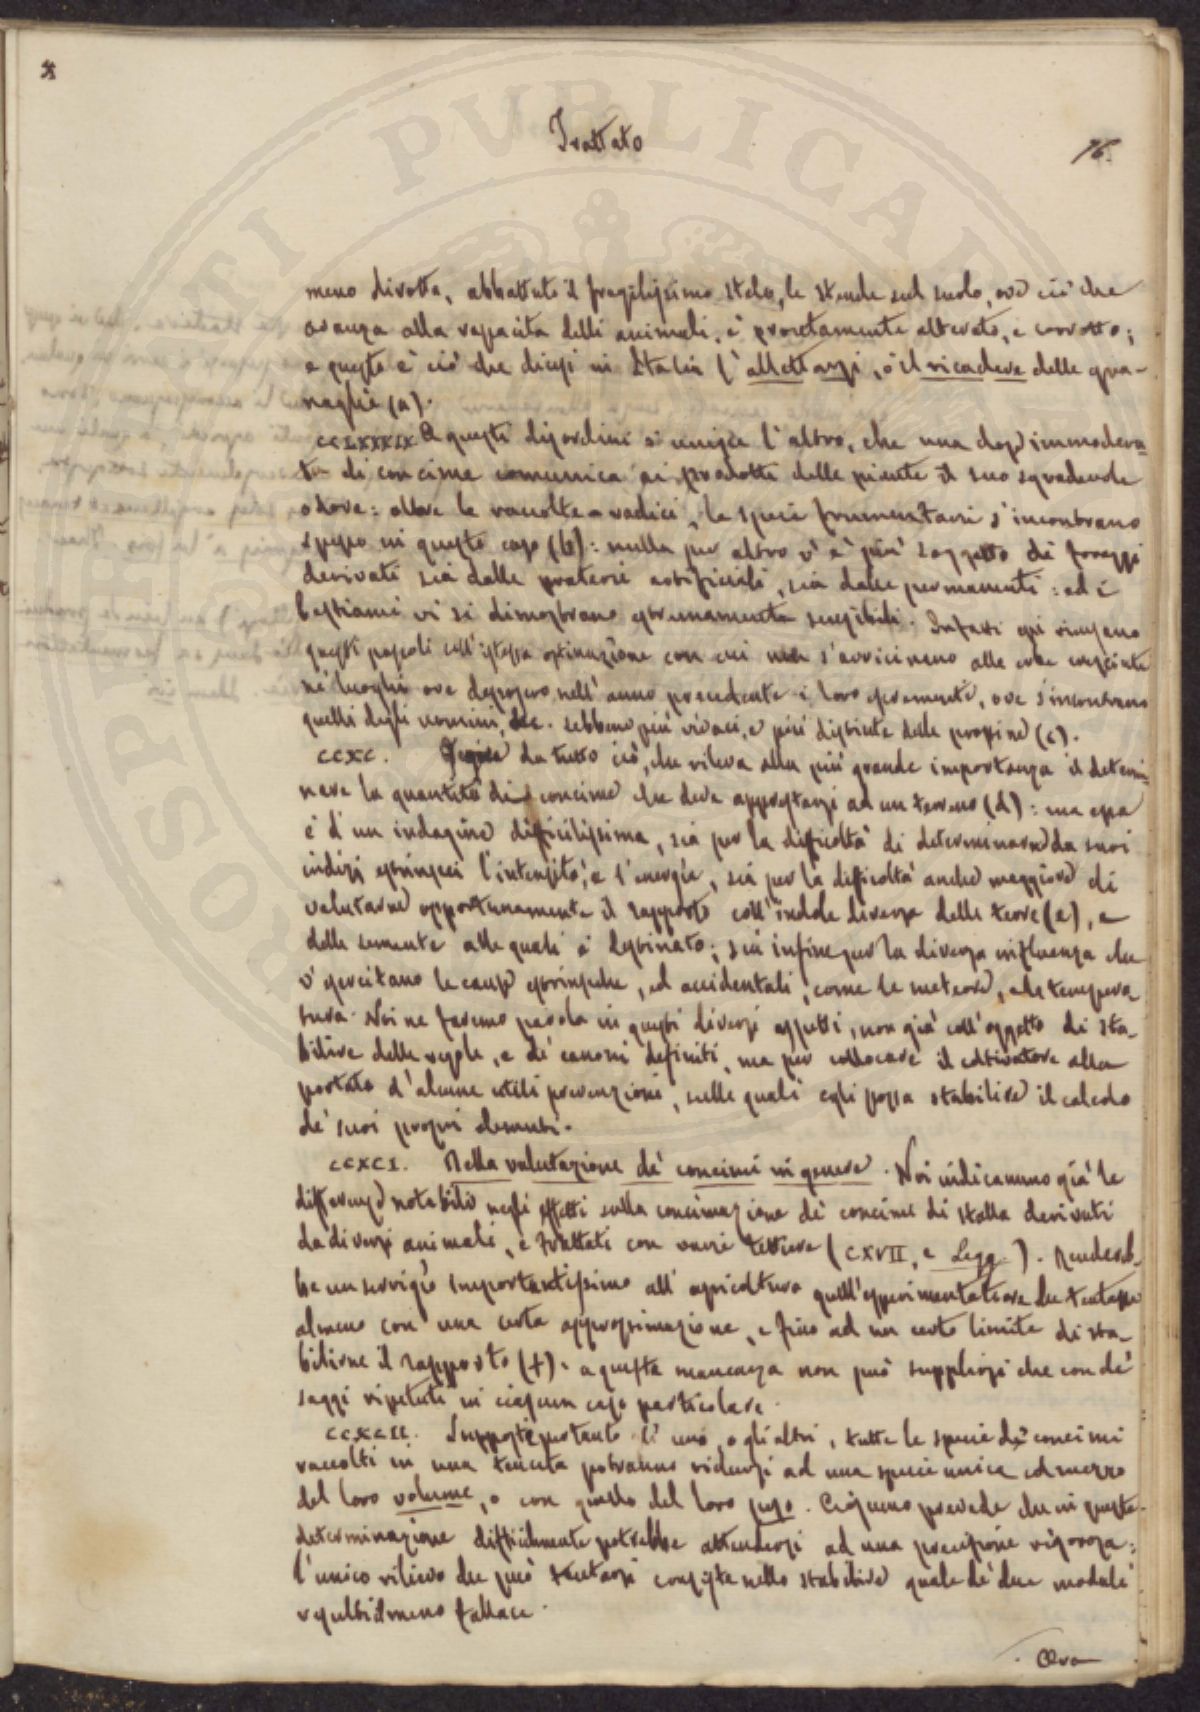 Trattato
76.
meno dirotta, abbattuto il fragilissimo stelo, le stende sul suolo, ove ciò che
avanza alla rapacità delli animali, è prontamente alterato, e corrotto;
e questo è ciò che dicesi in Italia l'allettarsi, o il ricadere delle gra-
naglie (a).
CCLXXXIX A questi disordini si unisce l'altro, che una dose immodera-
ta di concime comunica ai prodotti delle piante il suo sgradevole
odore: oltre le raccolte a radici, le specie frumentacei s'incontrano
spesso in questo caso (b): nulla per altro v'è più soggetto de' foraggi
derivati sia dalle praterie artificiali, sia dalle permanenti: ed i
bestiami vi si dimostrano estremamente sensibili. Infatti essi ricusano
questi pascoli coll'istessa ostinazione con cui non s'avvicinano alle erbe cresciute
ne' luoghi ove deposero nell'anno precedente i loro escrementi, ove s'incontrano
quelli degli uomini, &c. sebbene più vivaci, e più distinte delle prossime (c).
CCXC. Segue da tutto ciò, che rileva alla più grande importanza il determi-
nare la quantità di concime che deve apprestarsi ad un terreno (d): ma essa
è d'un indagine difficilissima, sia per la difficoltà di determinarne da suoi
indizj estrinseci l'intensità, e l'energia, sia per la difficoltà anche maggiore di
valutarne opportunamente il rapporto coll'indole diversa delle terre (e), e
delle semente alle quali è destinato; sia infine per la diversa influenza che
v'esercitano le cause estrinseche, ed accidentali, come le meteore, e la tempera
tura. Noi ne faremo parola in questi diversi aspetti, non già coll'oggetto di sta-
bilire delle regole, e de' canoni definiti, ma per collocare il coltivatore alla
portata d'alcune utili prevenzioni, sulle quali egli possa stabilire il calcolo
de' suoi proprj elementi.
CCXCI. Della valutazione de' concimi in genere. Noi indicammo già le
differenze notabili negli effetti sulla concimazione de' concimi di stalla derivati
da diversi animali, e trattati con varie lettiere (CXVII, e segg.). Rendereb-
be un servigio importantissimo all'agricoltura quell'esperimentatore che tentasse
almeno con una certa approssimazione, e fino ad un certo limite di sta-
bilirne il rapporto (f). a questa mancanza non può supplirsi che con de'
saggi ripetuti in ciascun caso particolare.
CCXCII. Supposti pertanto l'uno, o gli altri, tutte le specie de' concimi
raccolti in una tenuta potranno ridursi ad una specie unica col mezzo
del loro volume, o con quello del loro peso. Ciascuno prevede che in questa
determinazione difficilmente potrebbe attendersi ad una precisione rigorosa:
l'unico rilievo che può tentarsi consiste nello stabilire quale de' due moduli
risulti il meno fallace.
Ora